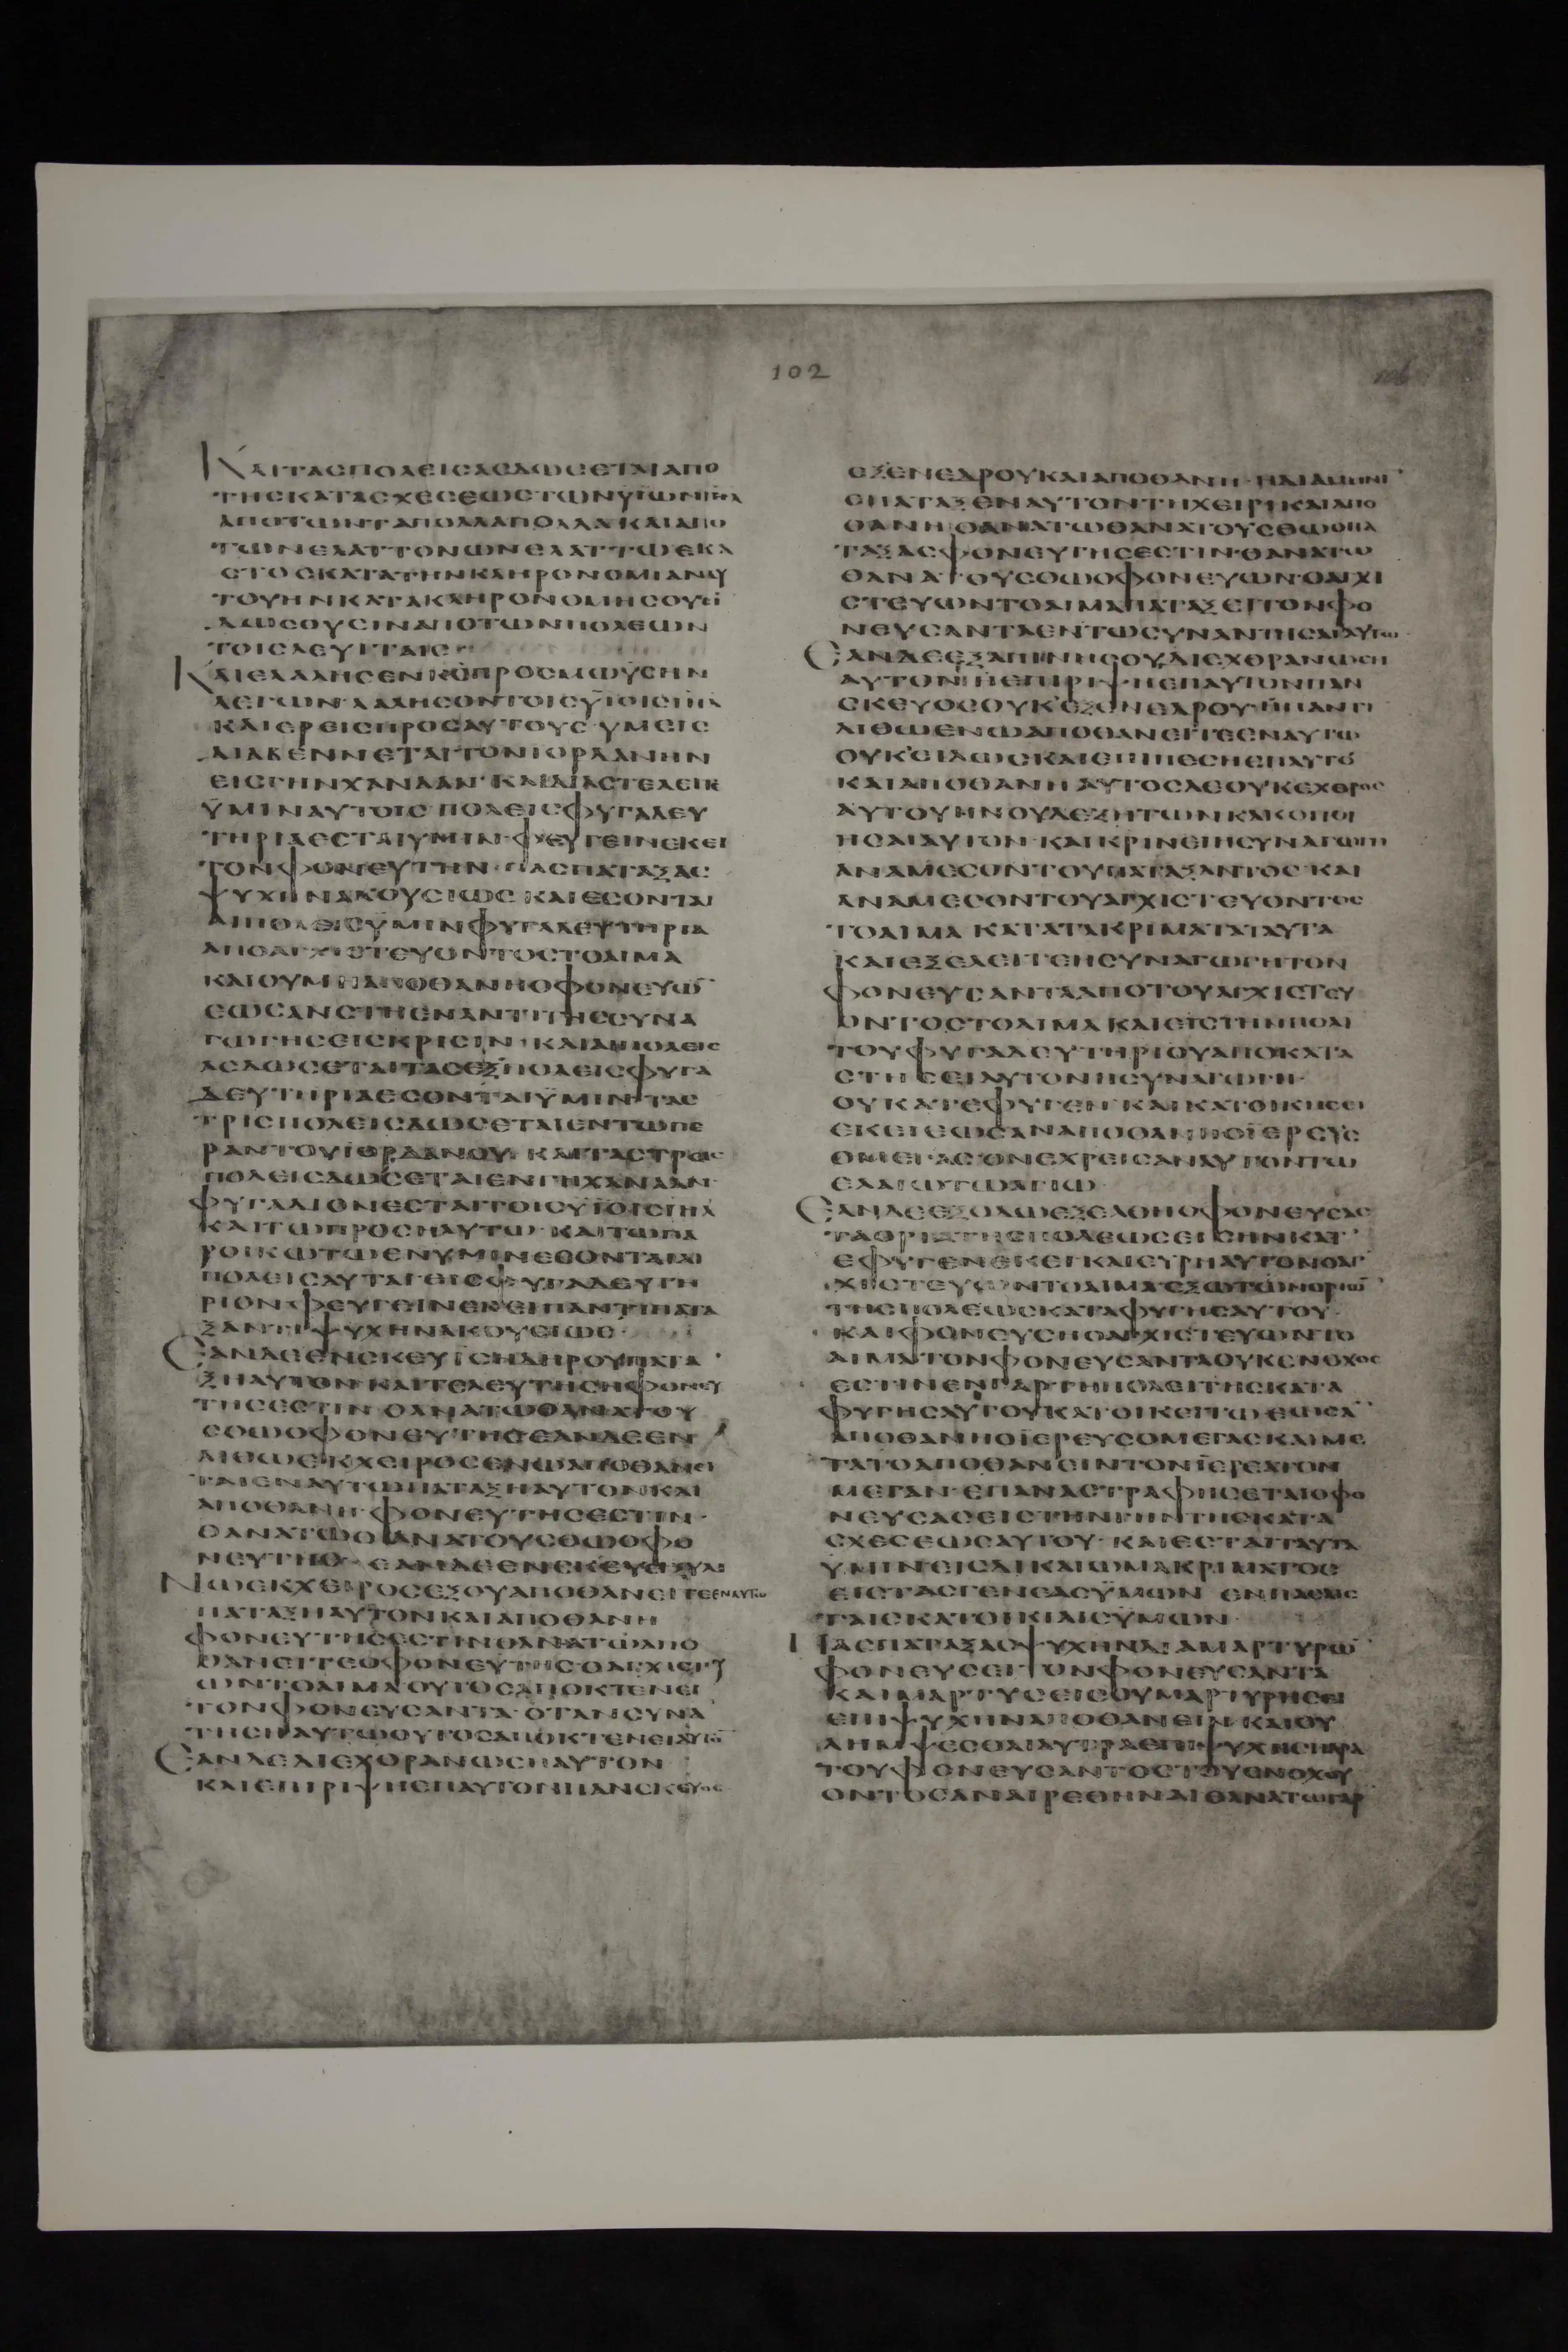 102
106
ΚΑΙΤΑΣΠΟΛΕΙΣΑΣΔΩΣΕΤΑΙΑΠΟ
ΤΗΣΚΑΤΑΣΧΕΣΕΩΣΤΩΝΥΪΩΝΙΗΛ
ΑΠΟΤΩΝΤΑΠΟΛΛΑΠΟΛΛΑΚΑΙΑΠΟ
ΤΩΝΕΛΑΤΤΟΝΩΝΕΛΑΤΤΩΕΚΑ
ΣΤΟΣΚΑΤΑΤΗΝΚΛΗΡΟΝΟΜΙΑΝΑΥ
ΤΟΥΗΝΚΑΤΑΚΛΗΡΟΝΟΜΗΣΟΥΣΙ
ΔΩΣΟΥΣΙΝΑΠΟΤΩΝΠΟΛΕΩΝ
ΤΟΙΣΛΕΥΙΤΑΙΣ
ΚΑΙΕΛΑΛΗΣΕΝΚΣΠΡΟΣΜΩΥΣΗΝ
ΛΕΓΩΝ·ΛΑΛΗΣΟΝΤΟΙΣΥΪΟΙΣΙΗΛ
ΚΑΙΕΡΕΙΣΠΡΟΣΑΥΤΟΥΣ·ΥΜΕΙΣ
ΔΙΑΒΕΝΝΕΤΑΙΤΟΝΙΟΡΔΑΝΗΝ
ΕΙΣΓΗΝΧΑΝΑΑΝ·ΚΑΙΔΙΑΣΤΕΛΕΙΤΕ
ΥΜΙΝΑΥΤΟΙΣ·ΠΟΛΕΙΣΦΥΓΑΔΕΥ
ΤΗΡΙΑΕΣΤΑΙΥΜΙΝ·ΦΕΥΓΕΙΝΕΚΕΙ
ΤΟΝΦΟΝΕΥΤΗΝ·ΠΑΣΠΑΤΑΞΑΣ
ΨΥΧΗΝΑΚΟΥΣΙΩΣ·ΚΑΙΕΣΟΝΤΑΙ
ΑΙΠΟΛΕΙΣΥΜΙΝΦΥΓΑΔΕΥΤΗΡΙΑ
ΑΠΟΑΓΧΙΣΤΕΥΟΝΤΟΣΤΟΑΙΜΑ
ΚΑΙΟΥΜΗΑΠΟΘΑΝΗΟΦΟΝΕΥΩ
ΕΩΣΑΝΣΤΗΕΝΑΝΤΙΤΗΣΣΥΝΑ
ΓΩΓΗΣΕΙΣΚΡΙΣΙΝ·ΚΑΙΑΙΠΟΛΕΙΣ
ΑΣΔΩΣΕΤΑΙΤΑΣΕΞΠΟΛΕΙΣΦΥΓΑ
ΔΕΥΤΗΡΙΑΕΣΟΝΤΑΙΥΜΙΝ·ΤΑΣ
ΤΡΙΣΠΟΛΕΙΣΔΩΣΕΤΑΙΕΝΤΩΠΕ
ΡΑΝΤΟΥΙΟΡΔΑΝΟΥ·ΚΑΙΤΑΣΤΡΕΙΣ
ΠΟΛΕΙΣΔΩΣΕΤΑΙΕΝΓΗΧΑΝΑΑΝ·
ΦΥΓΑΔΙΟΝΕΣΤΑΙΤΟΙΣΥΪΟΙΣΙΗΛ
ΚΑΙΤΩΠΡΟΣΗΛΥΤΩ·ΚΑΙΤΩΠΑ
ΡΟΙΚΩΤΩΕΝΥΜΙΝΕΣΟΝΤΑΙΑΙ
ΠΟΛΕΙΣΑΥΤΑΙΕΙΣΦΥΓΑΔΕΥΤΗ
ΡΙΟΝ·ΦΕΥΓΕΙΝΕΚΕΙΠΑΝΤΙΠΑΤΑ
ΞΑΝΤΙΨΥΧΗΝΑΚΟΥΣΙΩΣ·
ΕΑΝΔΕΕΝΣΚΕΥΙΣΙΔΗΡΟΥΠΑΤΑ
ΞΗΑΥΤΟΝ·ΚΑΙΤΕΛΕΥΤΗΣΗΦΟΝΕΥ
ΤΗΣΕΣΤΙΝ·ΘΑΝΑΤΩΘΑΝΑΤΟΥ
ΣΘΩΟΦΟΝΕΥΤΗΣΕΑΝΔΕΕΝ
ΛΙΘΩΕΚΧΕΙΡΟΣΕΝΩΑΠΟΘΑΝΕΙ
ΤΑΙΕΝΑΥΤΩΠΑΤΑΞΗΑΥΤΟΝΚΑΙ
ΑΠΟΘΑΝΗ·ΦΟΝΕΥΤΗΣΕΣΤΙΝ·
ΘΑΝΑΤΩΘΑΝΑΤΟΥΣΘΩΟΦΟ
ΝΕΥΤΗΣ·ΕΑΝΔΕΕΝΣΚΕΥΕΙΞΥΛΙ
ΝΩΕΚΧΕΙΡΟΣΕΞΟΥΑΠΟΘΑΝΕΙΤΕΕΝΑΥΤΩ
ΠΑΤΑΞΗΑΥΤΟΝΚΑΙΑΠΟΘΑΝΗ
ΦΟΝΕΥΤΗΣΕΣΤΙΝΘΑΝΑΤΩΑΠΟ
ΘΑΝΕΙΤΕΟΦΟΝΕΥΤΗΣ·ΟΑΓΧΙΣΤΕΥ
ΩΝΤΟΑΙΜΑΟΥΤΟΣΑΠΟΚΤΕΝΕΙ
ΤΟΝΦΟΝΕΥΣΑΝΤΑ·ΟΤΑΝΣΥΝΑ
ΤΗΣΗΑΥΤΩΟΥΤΟΣΑΠΟΚΤΕΝΕΙΑΥΤΟ
ΕΑΝΔΕΔΙΕΧΘΡΑΝΩΣΗΑΥΤΟΝ
ΚΑΙΕΠΙΡΙΨΗΕΠΑΥΤΟΝΠΑΝΣΚΕΥΟΣ
ΕΞΕΝΕΔΡΟΥΚΑΙΑΠΟΘΑΝΗ·ΗΔΙΑΜΗΝΙ
ΕΠΑΤΑΞΕΝΑΥΤΟΝΤΗΧΕΙΡΙΚΑΙΑΠΟ
ΘΑΝΗΘΑΝΑΤΩΘΑΝΑΤΟΥΣΘΩΟΠΑ
ΤΑΞΑΣΦΟΝΕΥΤΗΣΕΣΤΙΝ·ΘΑΝΑΤΩ
ΘΑΝΑΤΟΥΣΘΩΟΦΟΝΕΥΩΝ·ΟΑΓΧΙ
ΣΤΕΥΩΝΤΟΑΙΜΑΠΑΤΑΞΕΙΤΟΝΦΟ
ΝΕΥΣΑΝΤΑΕΝΤΩΣΥΝΑΝΤΗΣΑΙΑΥΤΩ
ΕΑΝΔΕΕΞΑΠΙΝΗΣΟΥΔΙΕΧΘΡΑΝΩΣΗ
ΑΥΤΟΝΗΕΠΙΡΙΨΗΕΠΑΥΤΟΝΠΑΝ
ΣΚΕΥΟΣΟΥΚΕΞΕΝΕΔΡΟΥ·ΗΠΑΝΤΙ
ΛΙΘΩΕΝΩΑΠΟΘΑΝΕΙΤΕΕΝΑΥΤΩ
ΟΥΚΕΙΔΩΣΚΑΙΕΠΙΠΕΣΗΕΠΑΥΤΟ
ΚΑΙΑΠΟΘΑΝΗΑΥΤΟΣΔΕΟΥΚΕΧΘΡΟΣ
ΑΥΤΟΥΗΝΟΥΔΕΖΗΤΩΝΚΑΚΟΠΟΙ
ΗΣΑΙΑΥΤΟΝ·ΚΑΙΚΡΙΝΕΙΗΣΥΝΑΓΩΓΗ
ΑΝΑΜΕΣΟΝΤΟΥΠΑΤΑΞΑΝΤΟΣ·ΚΑΙ
ΑΝΑΜΕΣΟΝΤΟΥΑΓΧΙΣΤΕΥΟΝΤΟΣ
ΤΟΑΙΜΑΚΑΤΑΤΑΚΡΙΜΑΤΑΤΑΥΤΑ
ΚΑΙΕΞΕΛΕΙΤΕΗΣΥΝΑΓΩΓΗΤΟΝ
ΦΟΝΕΥΣΑΝΤΑΑΠΟΤΟΥΑΓΧΙΣΤΕΥ
ΟΝΤΟΣΤΟΑΙΜΑΚΑΙΕΙΣΤΗΝΠΟΛΙ
ΤΟΥΦΥΓΑΔΕΥΤΗΡΙΟΥΑΠΟΚΑΤΑ
ΣΤΗΣΕΙΑΥΤΟΝΗΣΥΝΑΓΩΓΗ·
ΟΥΚΑΤΕΦΥΓΕΝ·ΚΑΙΚΑΤΟΙΚΗΣΕΙ
ΕΚΕΙΕΩΣΑΝΑΠΟΘΑΝΗΟΪΕΡΕΥΣ
ΟΜΕΓΑΣΟΝΕΧΡΕΙΣΑΝΑΥΤΟΝΤΩ
ΕΛΑΙΩΤΩΑΓΙΩ·
ΕΑΝΔΕΕΞΟΔΩΕΞΕΛΘΗΟΦΟΝΕΥΣΑΣ
ΤΑΟΡΙΑΤΗΣΠΟΛΕΩΣΕΙΣΗΝΚΑΤ
ΕΦΥΓΕΝΕΚΕΙΚΑΙΕΥΡΗΑΥΤΟΝΟΑΓ
ΧΙΣΤΕΥΩΝΤΟΑΙΜΑΕΞΩΤΩΝΟΡΙΩ
ΤΗΣΠΟΛΕΩΣΚΑΤΑΦΥΓΗΣΑΥΤΟΥ
ΚΑΙΦΟΝΕΥΣΗΟΑΓΧΙΣΤΕΥΩΝΤΟ
ΑΙΜΑΤΟΝΦΟΝΕΥΣΑΝΤΑΟΥΚΕΝΟΧΟΣ
ΕΣΤΙΝΕΝΓΑΡΤΗΠΟΛΕΙΤΗΣΚΑΤΑ
ΦΥΓΗΣΑΥΤΟΥΚΑΤΟΙΚΕΙΤΩΕΩΣΑ
ΑΠΟΘΑΝΗΟΪΕΡΕΥΣΟΜΕΓΑΣΚΑΙΜΕ
ΤΑΤΟΑΠΟΘΑΝΕΙΝΤΟΝΪΕΡΕΑΤΟΝ
ΜΕΓΑΝ·ΕΠΑΝΑΣΤΡΑΦΗΣΕΤΑΙΟΦΟ
ΝΕΥΣΑΣΕΙΣΤΗΝΓΗΝΤΗΣΚΑΤΑ
ΣΧΕΣΕΩΣΑΥΤΟΥ·ΚΑΙΕΣΤΑΙΤΑΥΤΑ
ΥΜΙΝΕΙΣΔΙΚΑΙΩΜΑΚΡΙΜΑΤΟΣ
ΕΙΣΤΑΣΓΕΝΕΑΣΥΜΩΝ·ΕΝΠΑΣΑΙΣ
ΤΑΙΣΚΑΤΟΙΚΙΑΙΣΥΜΩΝ·
ΠΑΣΠΑΤΑΞΑΣΨΥΧΗΝΔΙΑΜΑΡΤΥΡΩ
ΦΟΝΕΥΣΕΙΤΟΝΦΟΝΕΥΣΑΝΤΑ
ΚΑΙΜΑΡΤΥΣΕΙΣΟΥΜΑΡΤΥΡΗΣΕΙ
ΕΠΙΨΥΧΗΝΑΠΟΘΑΝΕΙΝ·ΚΑΙΟΥ
ΛΗΜΨΕΣΘΑΙΛΥΤΡΑΕΠΙΨΥΧΗΣΠΑΡΑ
ΤΟΥΦΟΝΕΥΣΑΝΤΟΣΤΟΥΕΝΟΧΟΥ
ΟΝΤΟΣΑΝΑΙΡΕΘΗΝΑΙΘΑΝΑΤΩΓΑΡ